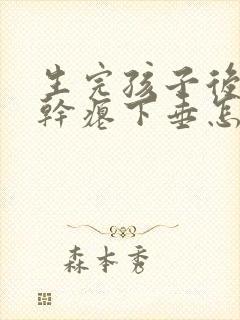 生完孩子後
幹癟下垂怎
森本秀